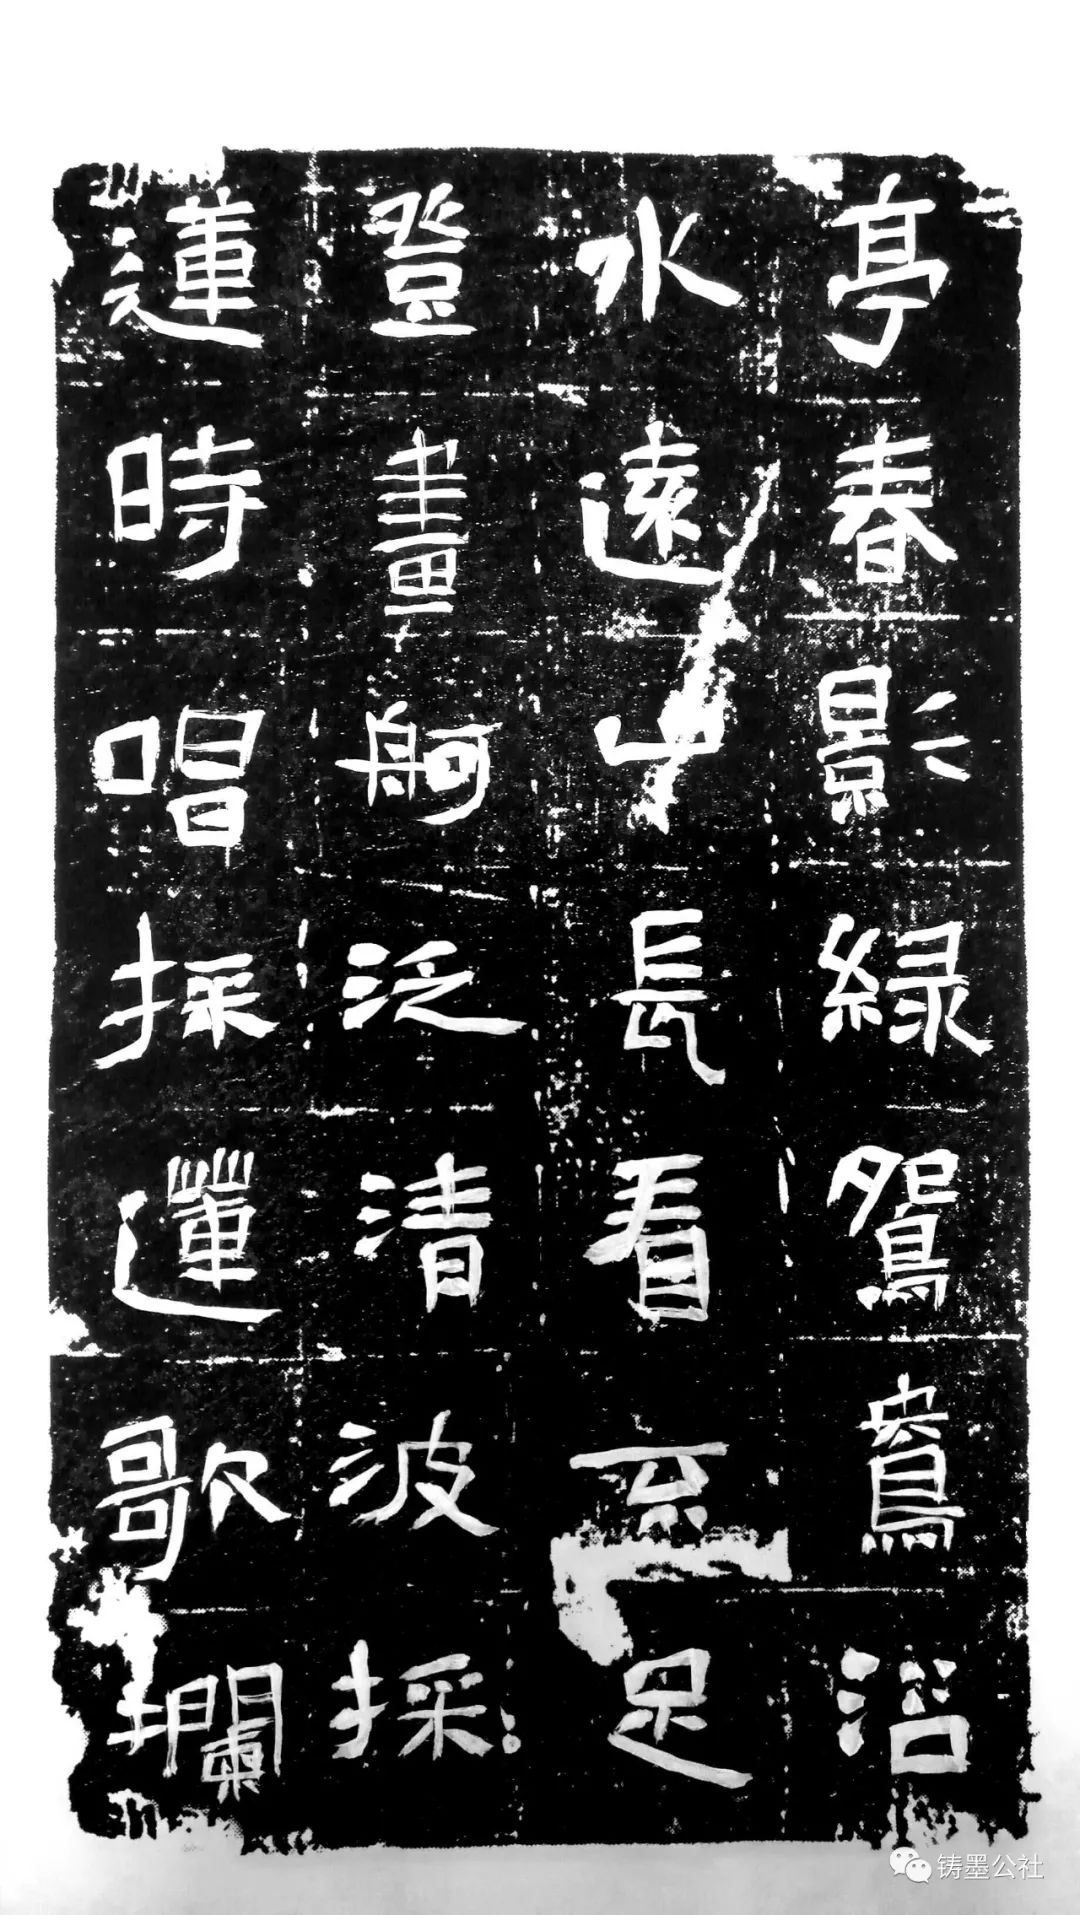 亭春影緑鴛鴦沼
水遠山長看不足
登畫舸泛清波採
蓮時唱採蓮歌欄
铸墨公社